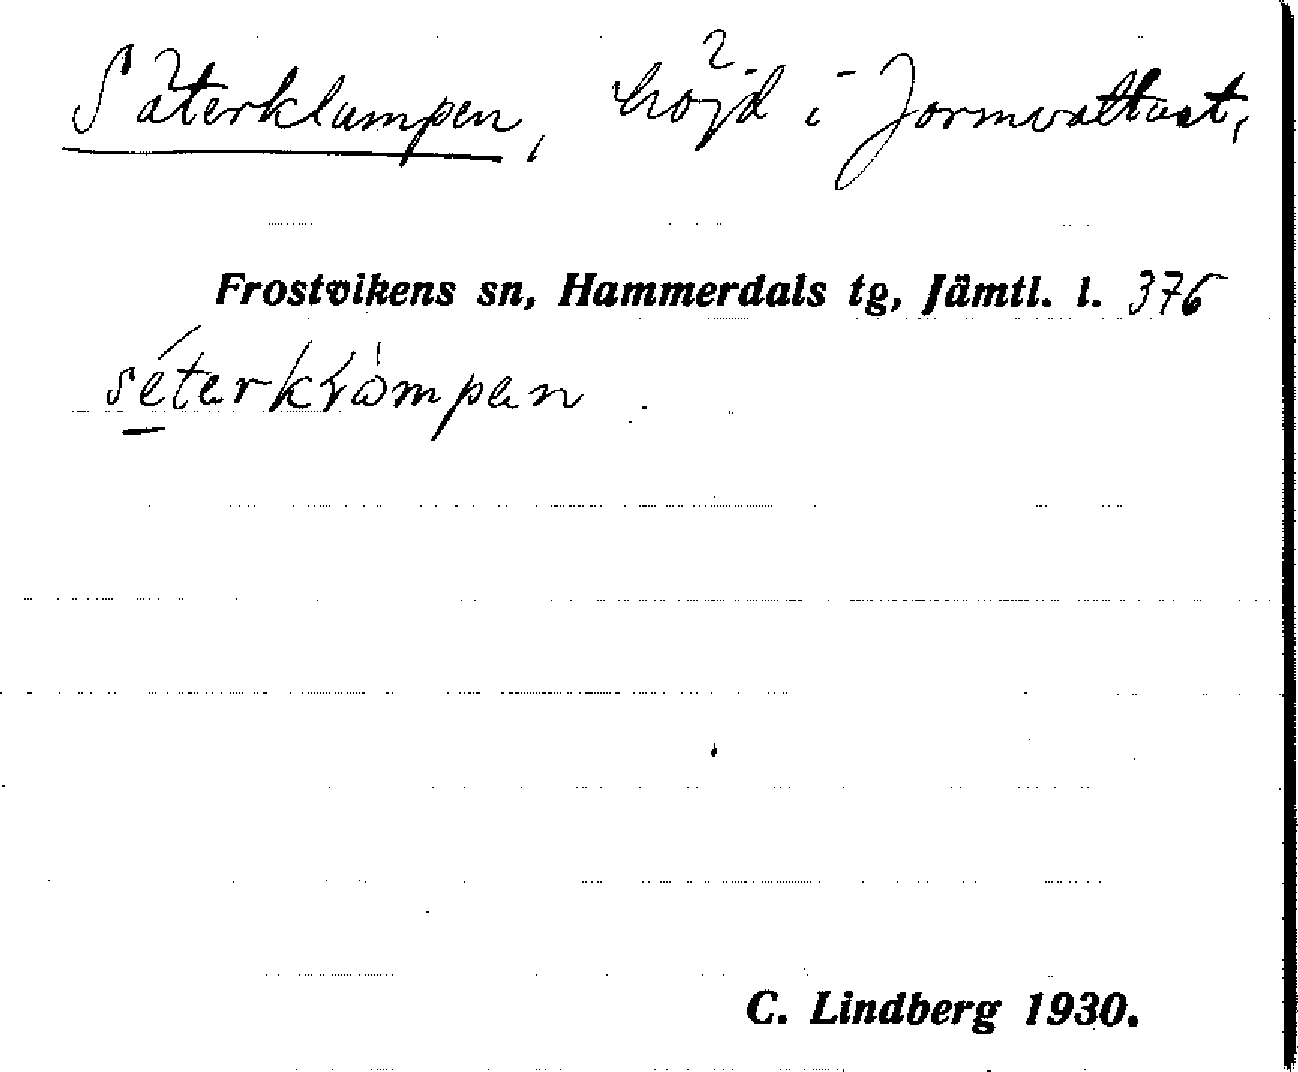 Säterklumpen, höjd i Jormvattnet,
Frostvikens sn, Hammerdals tg, Jämtl. l. 376
C. Lindberg 1930.